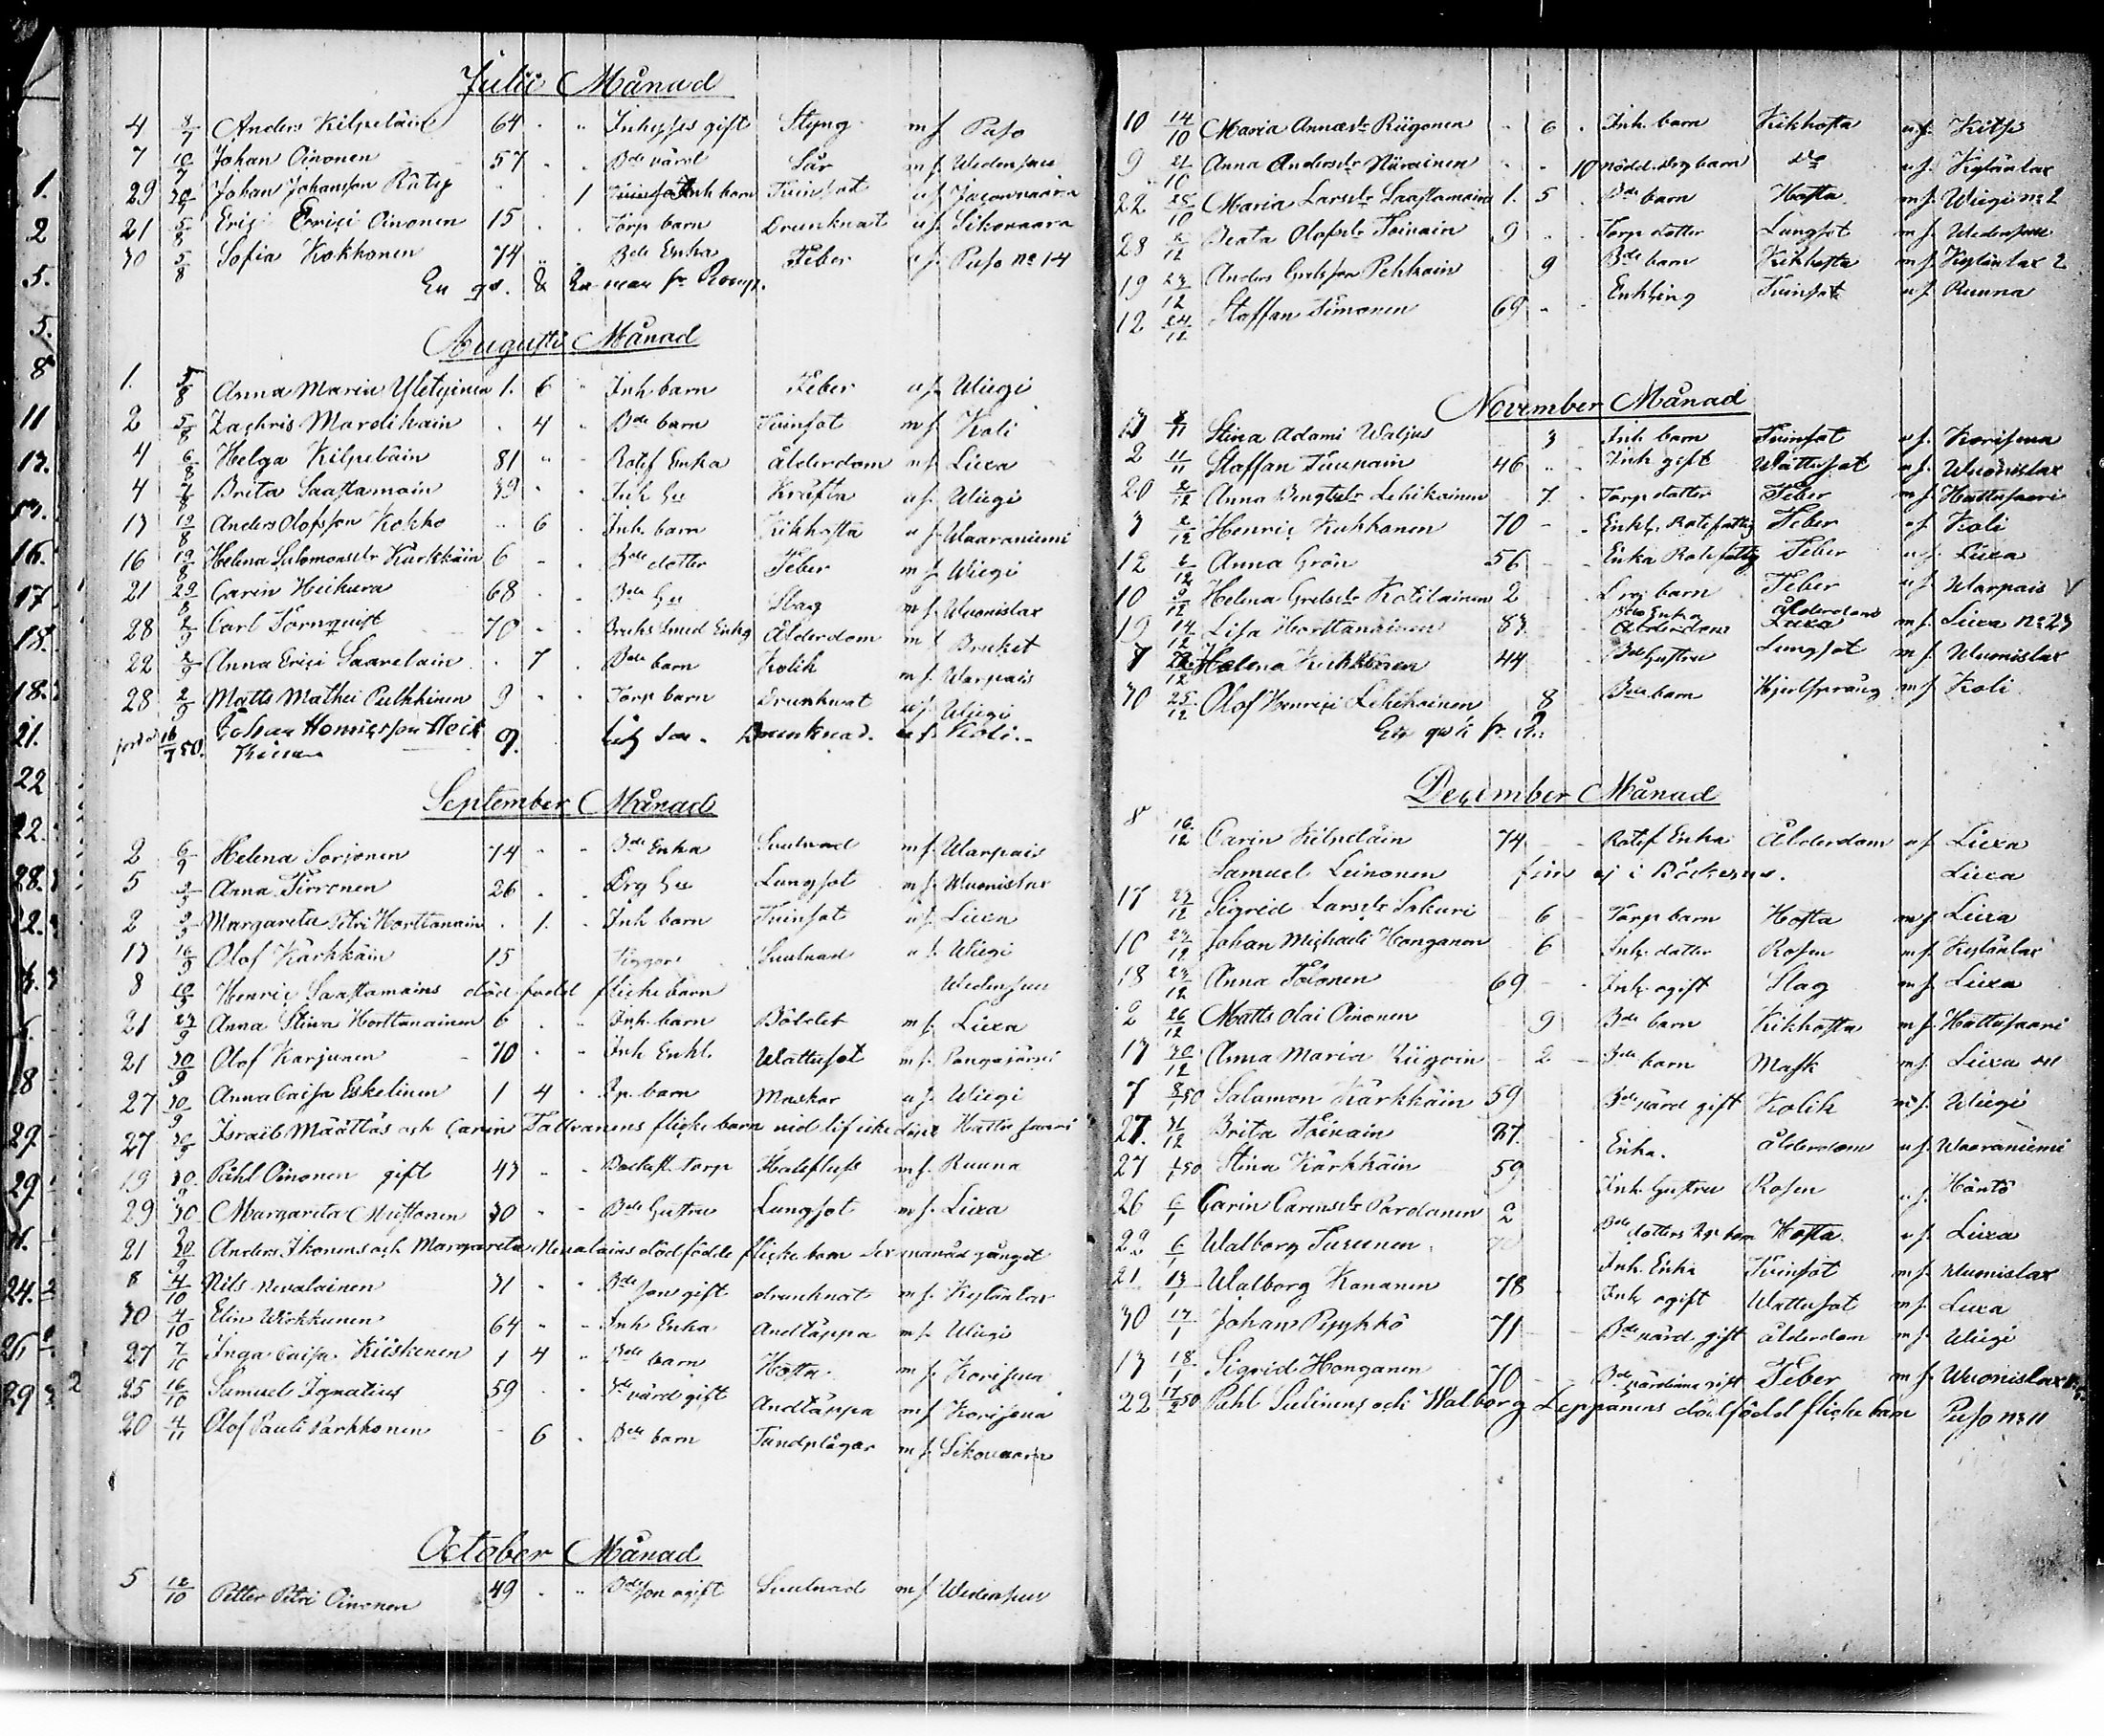 Julii Månad
4 8/7 Anders Kilpeläin 64 Inhyses gift Styng m f Puso
7 10/7 Johan Oinonen 57 Bde värd Sår m f Wiedensuu
29 Johan Johansson Rätÿ 1 Inh barn Tvinsot u f Jaconvaara
21 5/8 Eriç Eriçi Oinonen 15 Torp barn Drunknat u f Sikovaara
30 5/8 Sofia Kokkonen 74 Bde Enka Feber Puso No 14
Augusti Månad
1. 5/8 Anna Maria Yletyinen 1. 6 Inh barn Feber u f Wiegi
2 5/8 Zachris Mardikain 4 Bde barn Tvinsot m f Koli
4 6/8 Helga Kilpeläin 81 Rotef Enka Ålderdom u f Liexa
4 7/8 Brita Saastamoin 39 Inh Hu Kräfta u f Wiegi
13 12/8 Anders Olofsson Kokko 6 Inh. barn Kikhosta u f Waaraniemi
16 12/8 Helena Salomonsdr Kärkkäin 6 Bde dotter Feber m f Wiegi
21 29/8 Carin Heikura 68 Bde Hu Slag m f Wuonislax
28 2/9 Carl Törnquist 70 Bruks Smed Enkg Ålderdom m f Bruket
22 2/9 Anna Eriçi Saarelain 7 Bde barn Kolik m f Warpais
28 2/9 Matts Mathei Pulkkinen 9 Torp barn Drunknat u f Wiegi
16/7 50. Johan Henriçsson Heik
kinen 9. son. Drunknad. u f. Koli.
September Månad
2 6/9 Helena Sorjonen 74 Bde Enka Svulnad m f. Warpais
5 Anna Tirronen 26 Drg Hu Lungsot m f. Wuonislax
2 Margareta Petri Horttanain 1. Inh barn Tvinsot u f. Liexa
13 16/9 Olof Kärkkäin 15 Tiggare Svulnad u f. Wiegi
8 Henriç Saastamoins död född flicke barn Wiedensuu
21 23/9 Anna Stina Horttanainen 6 Inh. barn Bölder m f. Liexa
21 30/9 Olof Karjunen 70 Inh Enkl. Wattusot m f. Pangajärvi
27 30/9 Anna Caisa Eskelinen 1 4 Tp. barn Maskar u f. Wiegi
27 30/9 Israël Määttäs och Carin Tattranens flicke barn vid lif icke döpt Hattusaari
19 30/9 Påhl Oinonen gift 43 Torp Halsfluss m f. Ruuna
29 30/9 Margareta Mustonen 30 Bde Hustru Lungsot m f. Liexa
21 30/9 Anders Ikonens och Margareta Nevalains dödfödde flicke barn Sex månad gånget
8 4/10 Nils Nevalainen 31 Bde Son gift drunknat m f. Kylänlax
30 4/10 Elin Wiokkunen 64 Inh Enka Andtäppa m f. Wiegi
27 7/10 Inga Caisa Kiiskinen 1 4 Bde barn Hosta m f. Korisena
25 16/10 Samuel Ignatius 59 Bde värd gift Andtäppa m f Korisena
20 4/11 Olof Pauli Parkkonen 6 Bde barn Tandplågar m f. Sikovaara
October Månad
5 12/10 Petter Petri Oinonen 49 Bde son ogift Svulnad m f Wiedensuu
10 14/10 Maria Annædr Riigonen 6 Inh. barn Kikhosta u f. Kitsi
9 21/10 Anna Andersdr Nürainen 10 nödd. Drg barn do u f. Kylänlax
22 28/10 Maria Larsdr Saastamoin 1. 5 Bde barn Hosta m f. Wiegi No 2
28 2/12 Beata Olofsdr Toivain 9 Torp dotter Lungsot m f. Wiedensuu
19 23/12 Anders Gretasson Pehkoin 9 Bde barn Kikhosta m f. Kylänlax 2
12 24/12 Staffan Timonen 69 Enkling Tvinsot u f. Ruuna
November Månad
13 8/11 Stina Adami Waljus 3 Inh barn Tvinsot u f. Korisena
2 11/11 Staffan Tuunain 46 Inh gift Wattusot u f. Wuonislax
20 2/12 Anna Bengtsdr Lehikainen 7. Torp dotter Feber m f. Hattusaari
3 2/12 Henriç Kukkonen 70 Enkl. Rotefattig Feber u f. Koli
12 6/12 Anna Grön 56 Enka Rotefattig Feber u f. Liexa
10 9/12 Helena Gretsdr Kotilainen 2 Drg barn Feber u f Warpais V
19 14/12 Lisa Horttanainen 83 Bde Enka Ålderdom m f. Liexa No 23
7 Helena Kukkonen 44 Bde Hustru Lungsot m f Wuonislax
30 25/12 Olof Henriçi Lehikoinen 8 Bde barn Hjertsprång m f. Koli
December Månad
8 16/12 Carin Kilpeläin 74 Rotef Enka Ålderdom u f Liexa
Samuel Leinonen fins ej i Böckerne. Liexa
17 23/12 Sigrid Larsdr Sakuri 6 Torp barn Hosta m f. Liexa
10 23/12 Johan Michaeli Honganen 6 Inh. dotter Rosen m f. Kylänlax
18 23/12 Anna Tolonen 69 Inh. ogift Slag m f. Liexa
2 26/12 Matts Olai Oinonen 9 Bde barn Kikhosta m f. Hattusaari
13 30/12 Anna Maria Riigoin 2 Bde barn Mask m f. Liexa
7 8/1 50 Salomon Kärkkäin 59 Bde värd gift Kolik m f. Wiegi
27. 31/12 Brita Toivain 87. Enka. Ålderdom u f. Waaraniemi
27 50 Stina Kärkkäin 59 Inh. Hustru Rosen u f. Höntö
26 6/1 Carin Carinsdr Pardanen 2 Bde dotters barn Hosta u f. Liexa
22 6/1 Walborg Turunen Inh. Enka Tvinsot m f. Wuonislax
21 13/1 Walborg Kananen 78 Inh ogift Wattusot m f. Liexa
30 17/1 Johan Pyykkö 71 Bde värd gift ålderdom m f. Wiegi
13 18/1 Sigrid Honganen 70 Bde värdinna gift Feber m f. Wuonislax
22 17/2 50 Påhl Sulinens och Walborg Leppänens dödfödd flicke barn Puso No 11